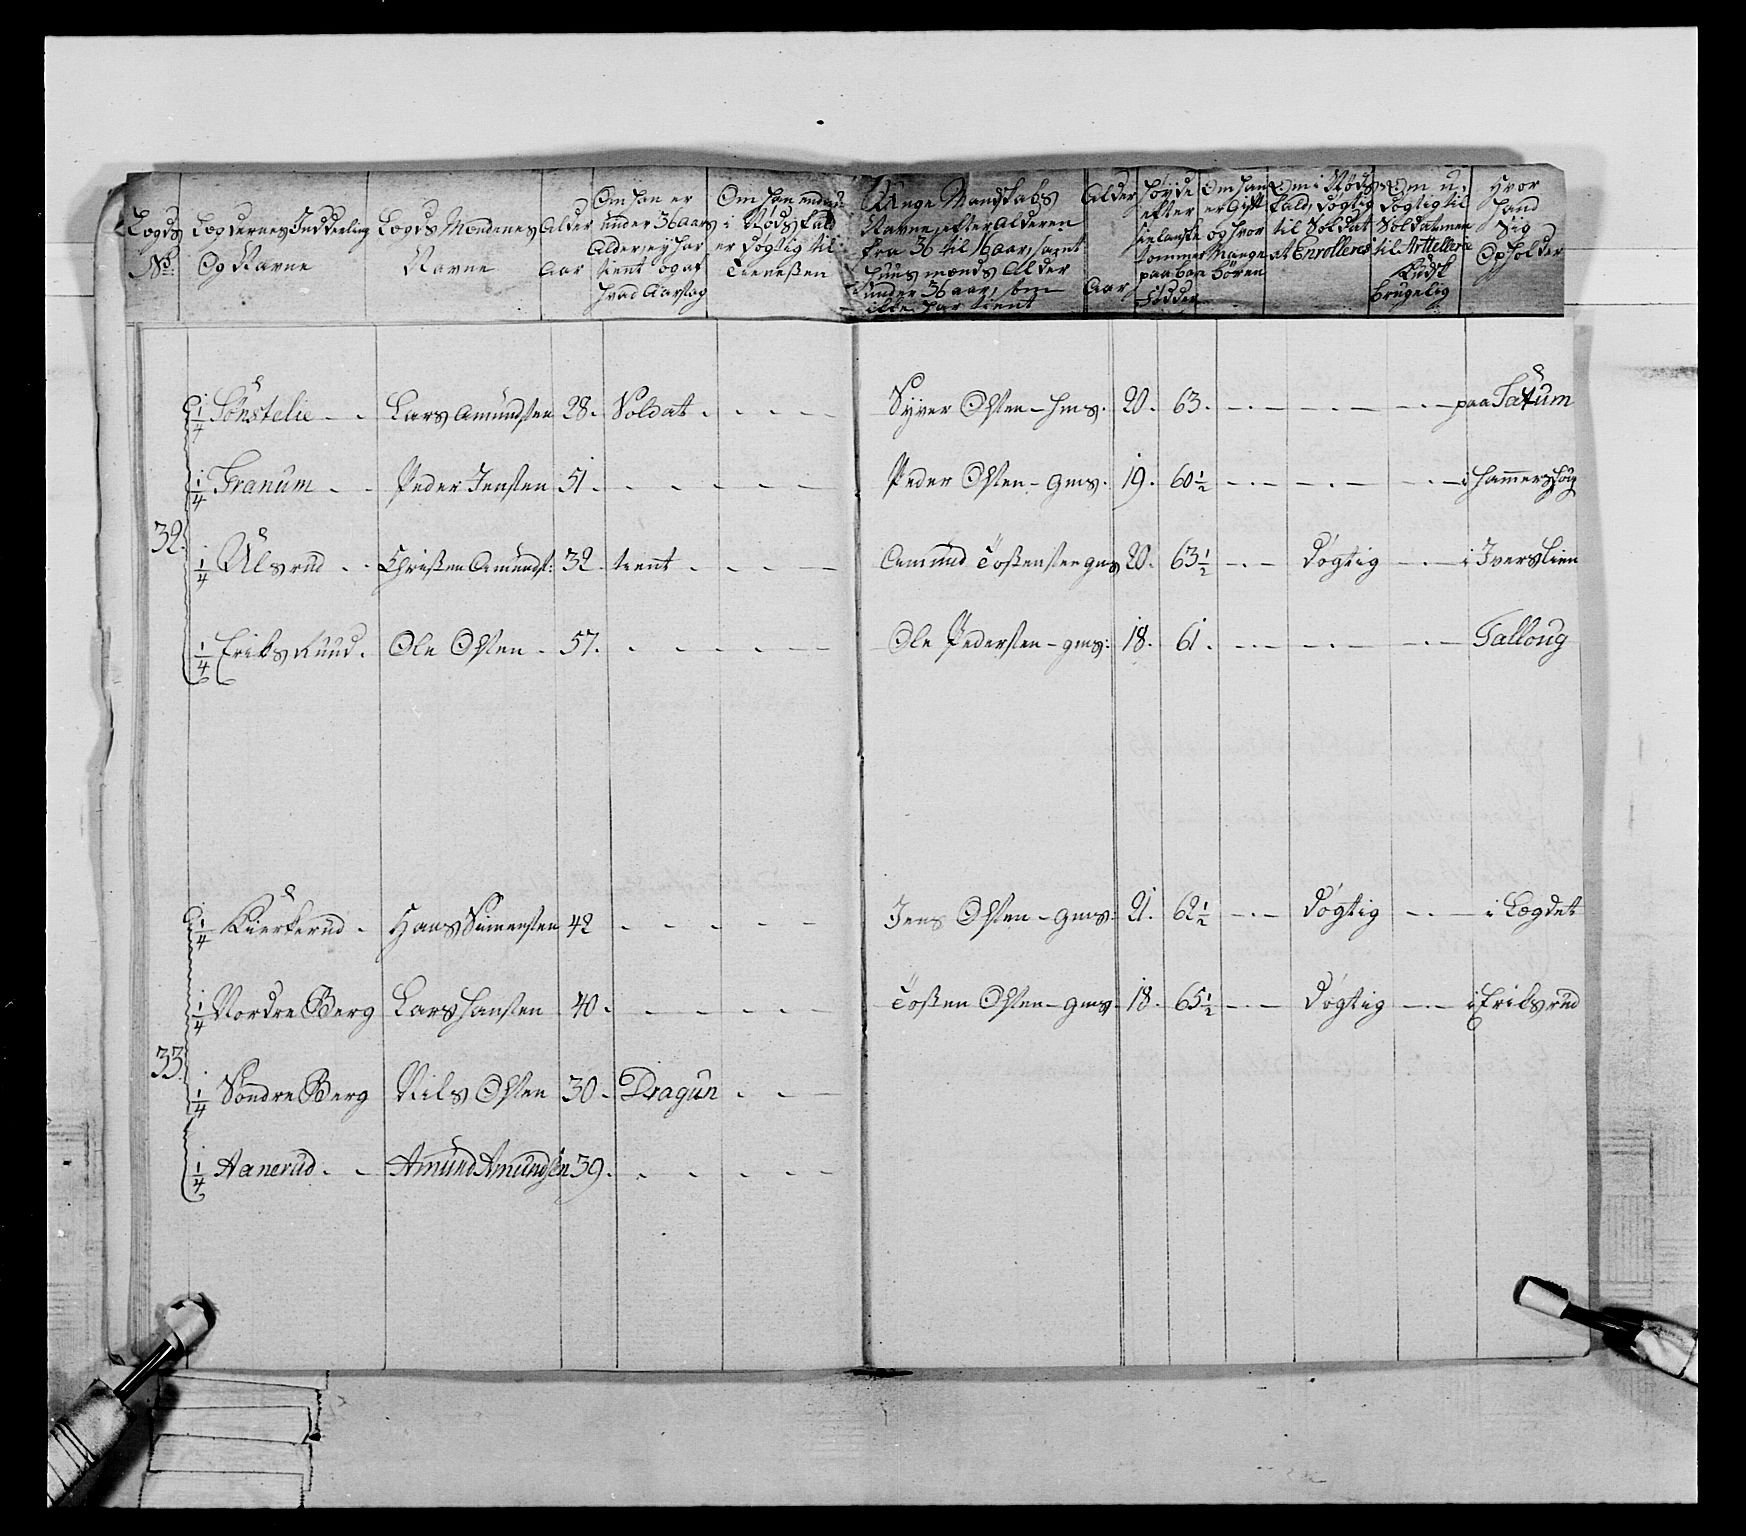 Legds No:
Legdernes Inddeeling Og Navne
Legds Mændenes Navne
Alder Aar
Om han er under 36 aars Alder ej har tient og af hvad Aarsag
Om han endnu i Nøds fald er dygtig til Tieneßen
Unge Mandskabs Navne efter Alderen fra 36 til 16 aar, samt Huusmænds Alder under 36 aar, som ikke har tient
Alder Aar
Høyde efter siælanske tommer paa baa födder
Om han er Gift og hvor Mange börn
Om i Nøds fald dygtig til Soldat at Enrolleres
Om u-dygtig til Soldat men til Arttellerie Kudsk brugelig
Hvor hand Sig Opholder
32.
1/4 Sönstelie - - Lars Amundsen 28. Soldat. - - - Syver Olsen - hms. 20. 63. - . - - . - - . - paa Tätum
1/4 Franum - - Peder Jensen 51. - - - - - Peder Olsen - gms. 19. 60 1/2 - . - - . - - . - i Hammershöug
1/4 Ulsrud - - Christen Amunds: 32. tient - - - - Amund Toßensen gms 20. 63 1/2 - . - Dögtig - . - i Iverslien
1/4 Eriksrüud. Ole Olsen - 57. - - - - - Ole Pedersen - gms: 18. 61. - . - - . - - . - Talloug
33.
1/4 Kierkerud - Hans Simensen 42 - - - - - Jens Olsen - gms. 21. 62 1/2 - . - Dögtig - . - i Legdet
1/4 Nordre Berg Lars Hansen 40. - - - - - Toßen Olsen - gms. 18. 65 1/2 - . - Dögtig - . - i Eriksrud
1/4 Söndre Berg Nils Olsen 30. Dragun - - -
1/4 Aanerud. - Amund Amundsen 39. - - - - -